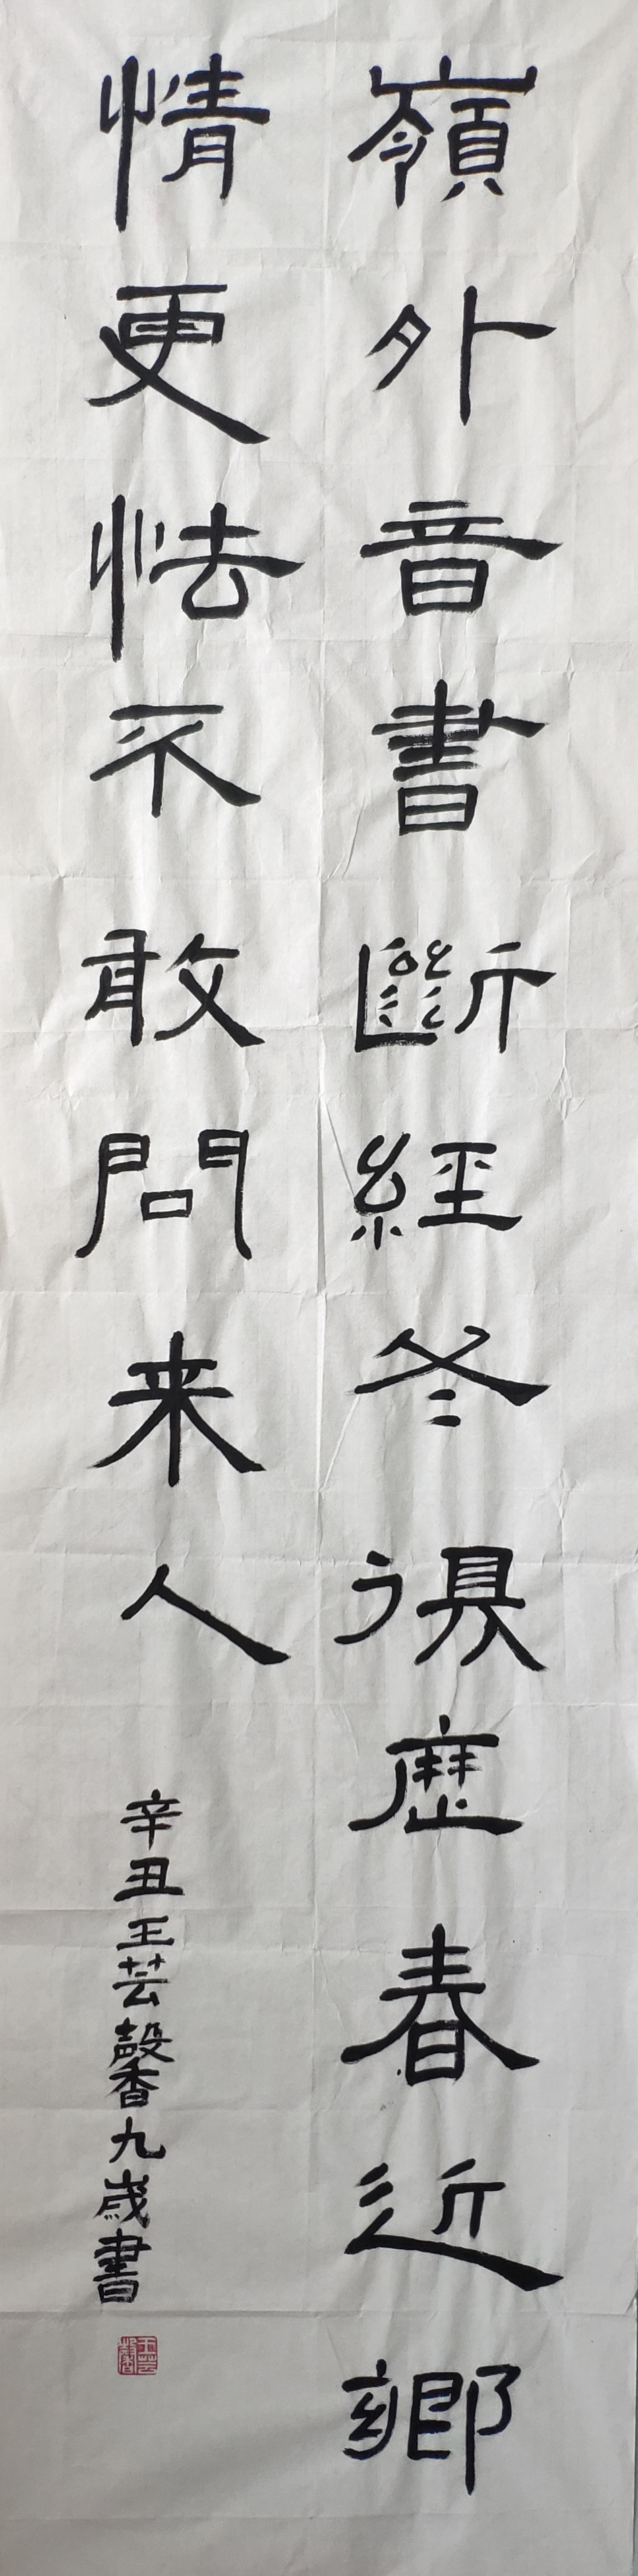 嶺外音書斷經冬復歷春近鄉
情更怯不敢問来人
辛丑王芸馨九歲書
王芸馨